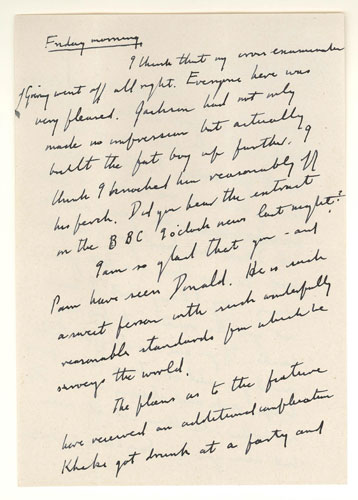 Friday morning.
I think that my cross examination
of Göring went off all right. Everyone here was
very pleased. Jackson had not only
made no impression but actually
built the fat boy up further. I
think I knocked him reasonably off
his perch. Did you hear the extract
on the BBC 9 o'clock news last night?
I am so glad that you - and
Pam have seen Donald. He is such
a sweet person with such wonderfully
reasonable standards from which he
surveys the world.
The plans as to the future
have received an additional complication
got drunk at a party and